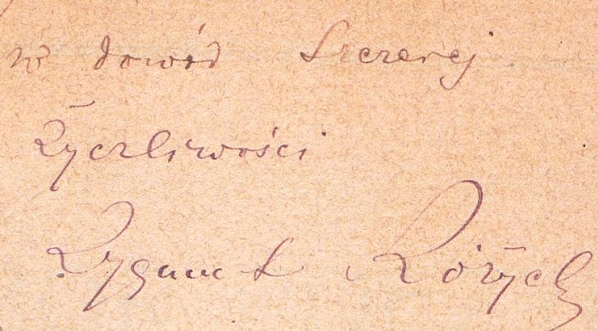 w dowód Szczerej
Życzliwości
Zygmunt Różyck